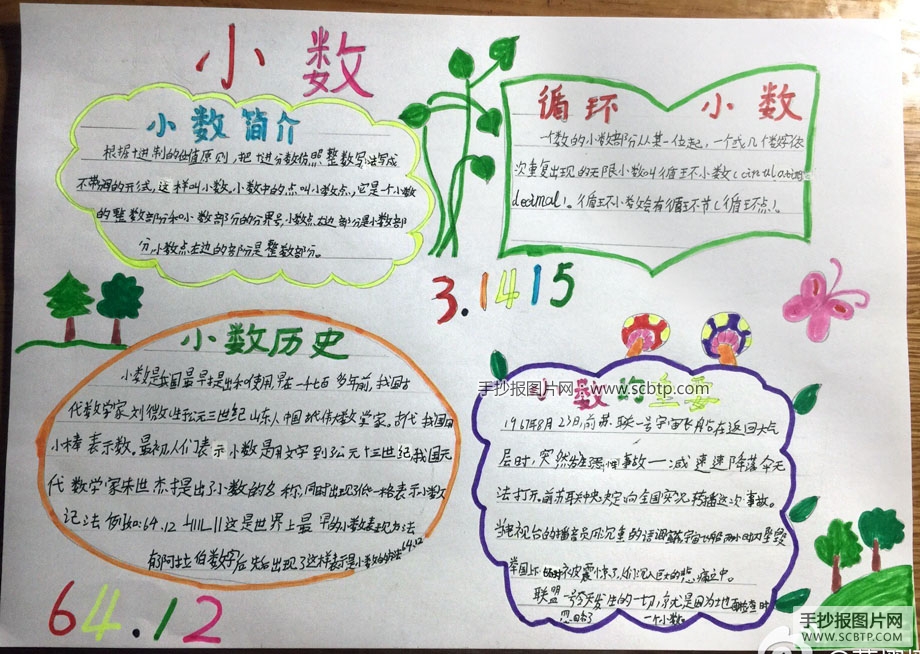 小数
小数简介
根据十进制的位值原则，把十进分数仿照整数写法写成
不带分母的形式，这样叫小数。小数中的点叫小数点，它是一个小数
的整数部分和小数部分的分界号，小数点左边部分是小数部
分，小数点左边的部分是整数部分。
循环 小数
一个数的小数部分从某一位起，一个或几个数字依
次重复出现的无限小数叫循环小数(
decimal)。循环小数会有循环节(循环点)。
3.1415
小数历史
小数是我国最早提出和使用早在一千七百多年前，我国古
代数学家刘徽
小棒表示数。最初人们表示小数是用文字到了公元十三世纪，我国元
代数学家朱世杰提出了小数的名称，同时出现了低一格表示小数
记法 例如：64.12 这是世界上最早的小数表现方法
阿拉伯数字后先后出现了这样表示小数的方法64.12
小数的重要
手抄报图片网：www.scbtp.com
1967年8月23日，前苏联一号宇宙飞船在返回大气
层时，突然发生恶性事故——减速降落伞无
法打开。前苏联中央决定向全国实况转播这次事故。
当电视台的播音员用沉重的语调宣布宇宙飞船两小时内坠毁
举国上下
联盟一号今天发生的一切，就是因为地面检查时
忽略了 一个小数。
64.12
手抄报图片网
WWW.SCBTP.COM